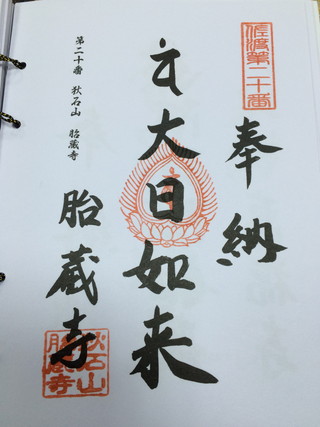 佐渡第二十番
奉納
大日如来
胎蔵寺
秋石山
胎蔵寺
第二十番 秋石山 胎蔵寺